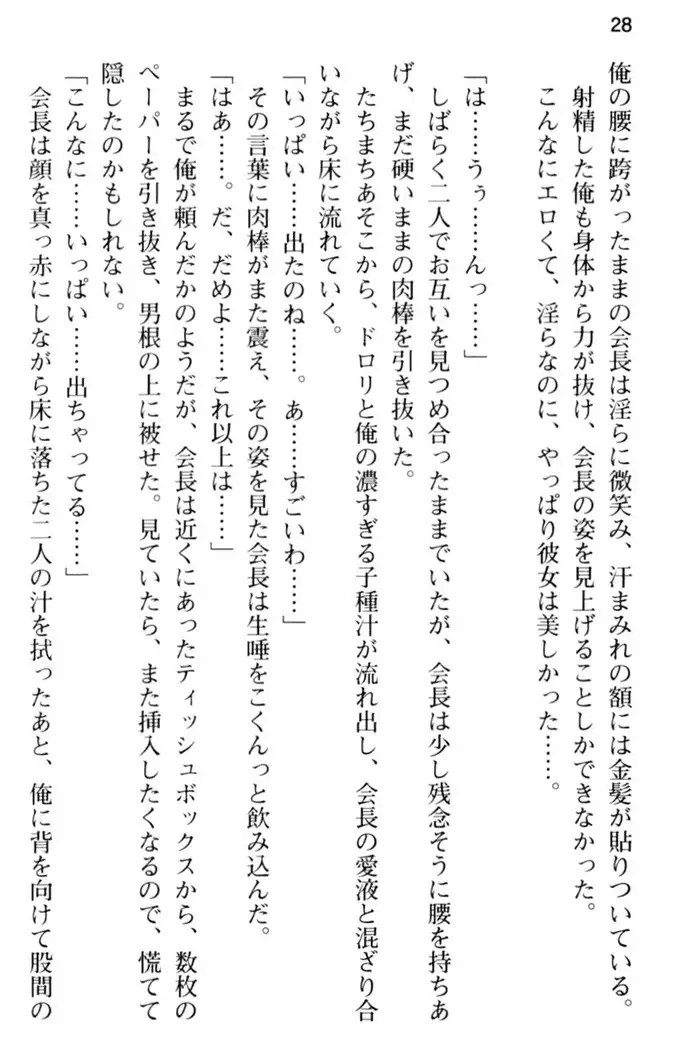 28
俺の腰に跨がったままの会長は淫らに微笑み、汗まみれの額には金髪が貼りついている。
射精した俺も身体から力が抜け、会長の姿を見上げることしかできなかった。
こんなにエロくて、淫らなのに、やっぱり彼女は美しかった……。
「は……うぅ……んっ……」
しばらく二人でお互いを見つめ合ったままでいたが、会長は少し残念そうに腰を持ちあ
げ、まだ硬いままの肉棒を引き抜いた。
たちまちあそこから、ドロリと俺の濃すぎる子種汁が流れ出し、会長の愛液と混ざり合
いながら床に流れていく。
「いっぱい……出たのね……。あ……すごいわ……」
その言葉に肉棒がまた震え、その姿を見た会長は生唾をこくんっと飲み込んだ。
「はあ……。だ、だめよ……これ以上は……」
まるで俺が頼んだかのようだが、会長は近くにあったティッシュボックスから、数枚の
ペーパーを引き抜き、男根の上に被せた。見ていたら、また挿入したくなるので、慌てて
隠したのかもしれない。
「こんなに……いっぱい……出ちゃってる……」
会長は顔を真っ赤にしながら床に落ちた二人の汁を拭ったあと、俺に背を向けて股間の